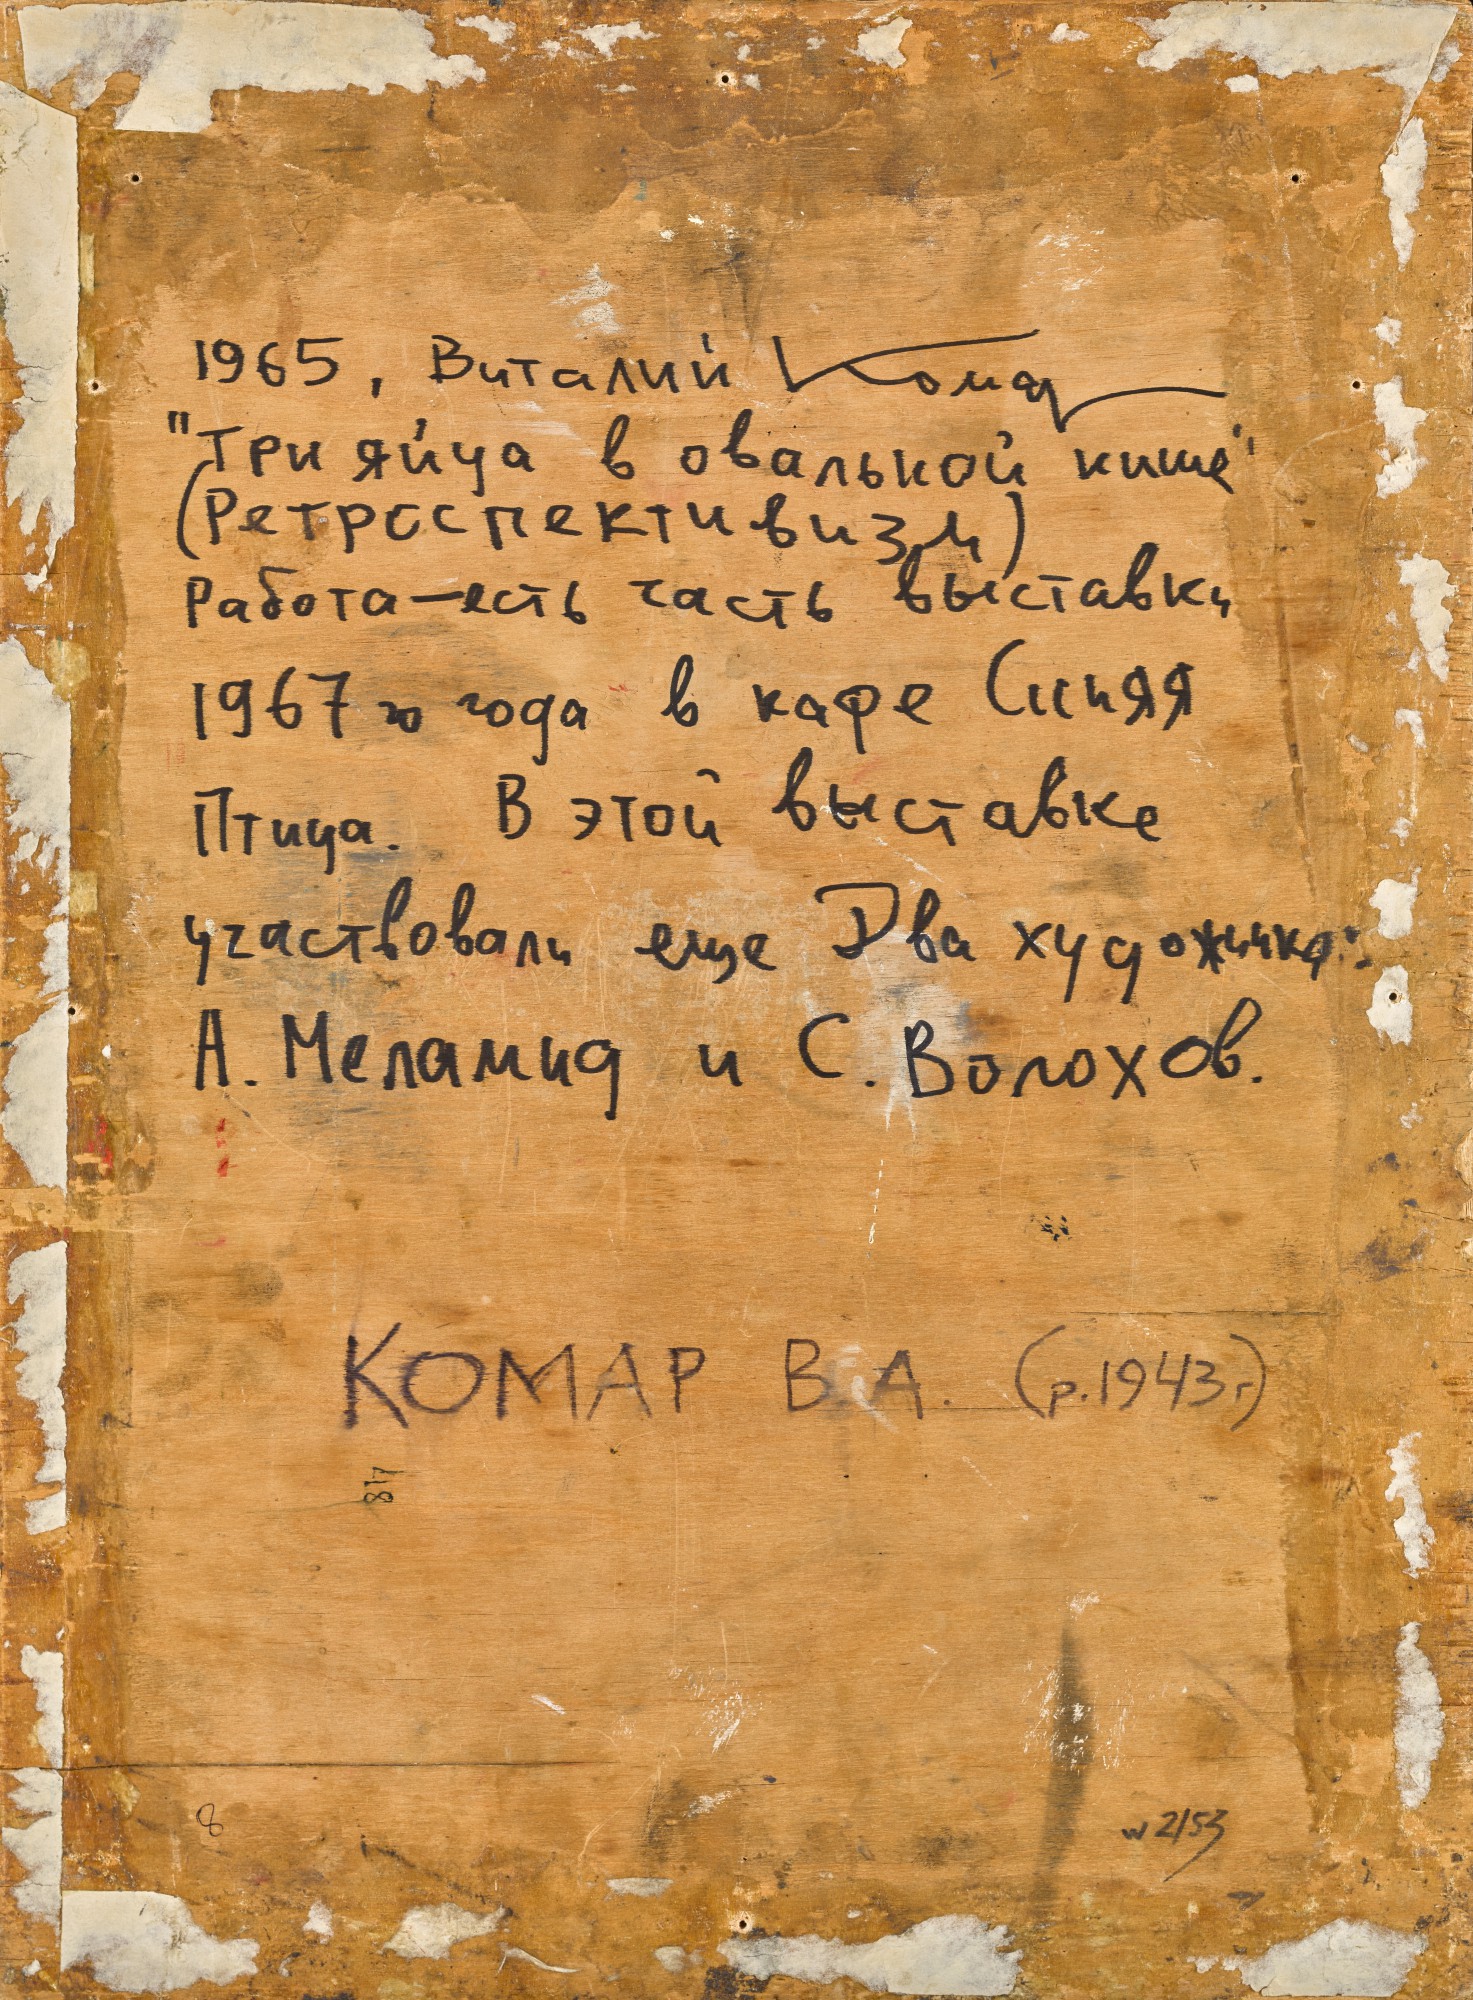 1965, Виталий Комар
"Три яйца в овальной нише"
(Ретроспективизм)
Работа—есть часть выставки
1967го года в кафе Синяя
Птица. В этой выставке
участвовали еще Два художника:
А. Меламид и С. Волохов.
КОМАР В.А. (р.1943г)
817
8
w 2153